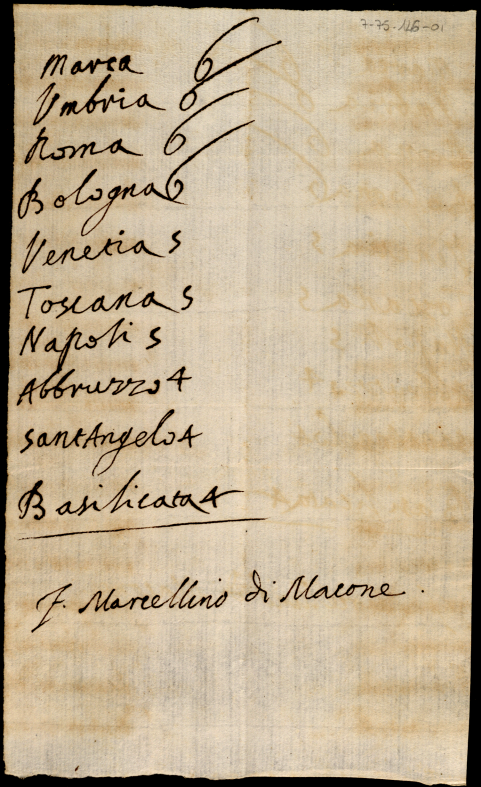 7-75-126-01
Marca 6
Umbria 6
Roma 6
Bologna 6
Venetia 5
Toscana 5
Napoli 5
Abbruzzo 4
santAngelo 4
Basilicata 4
F. Marcellino di Macone.